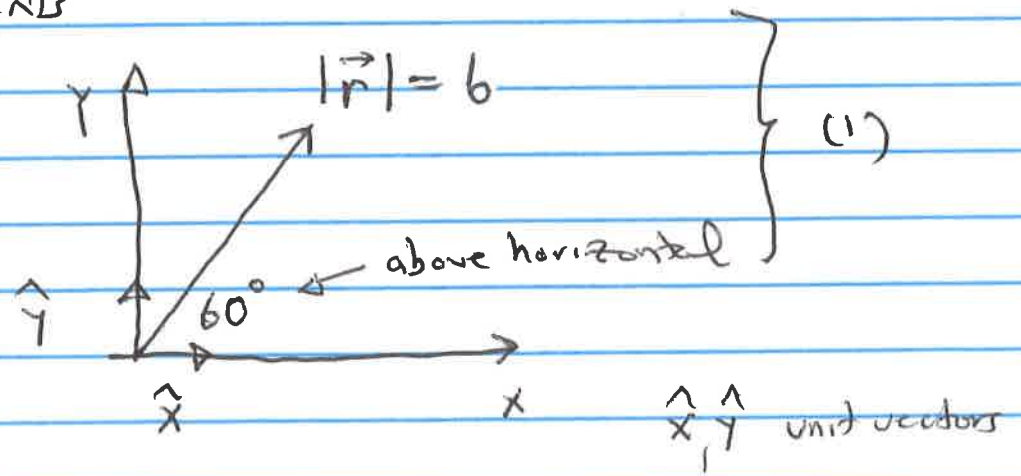 Y |r⃗| = 6
(1)
above horizontal
ŷ 60°
x̂ x x̂, ŷ unit vectors